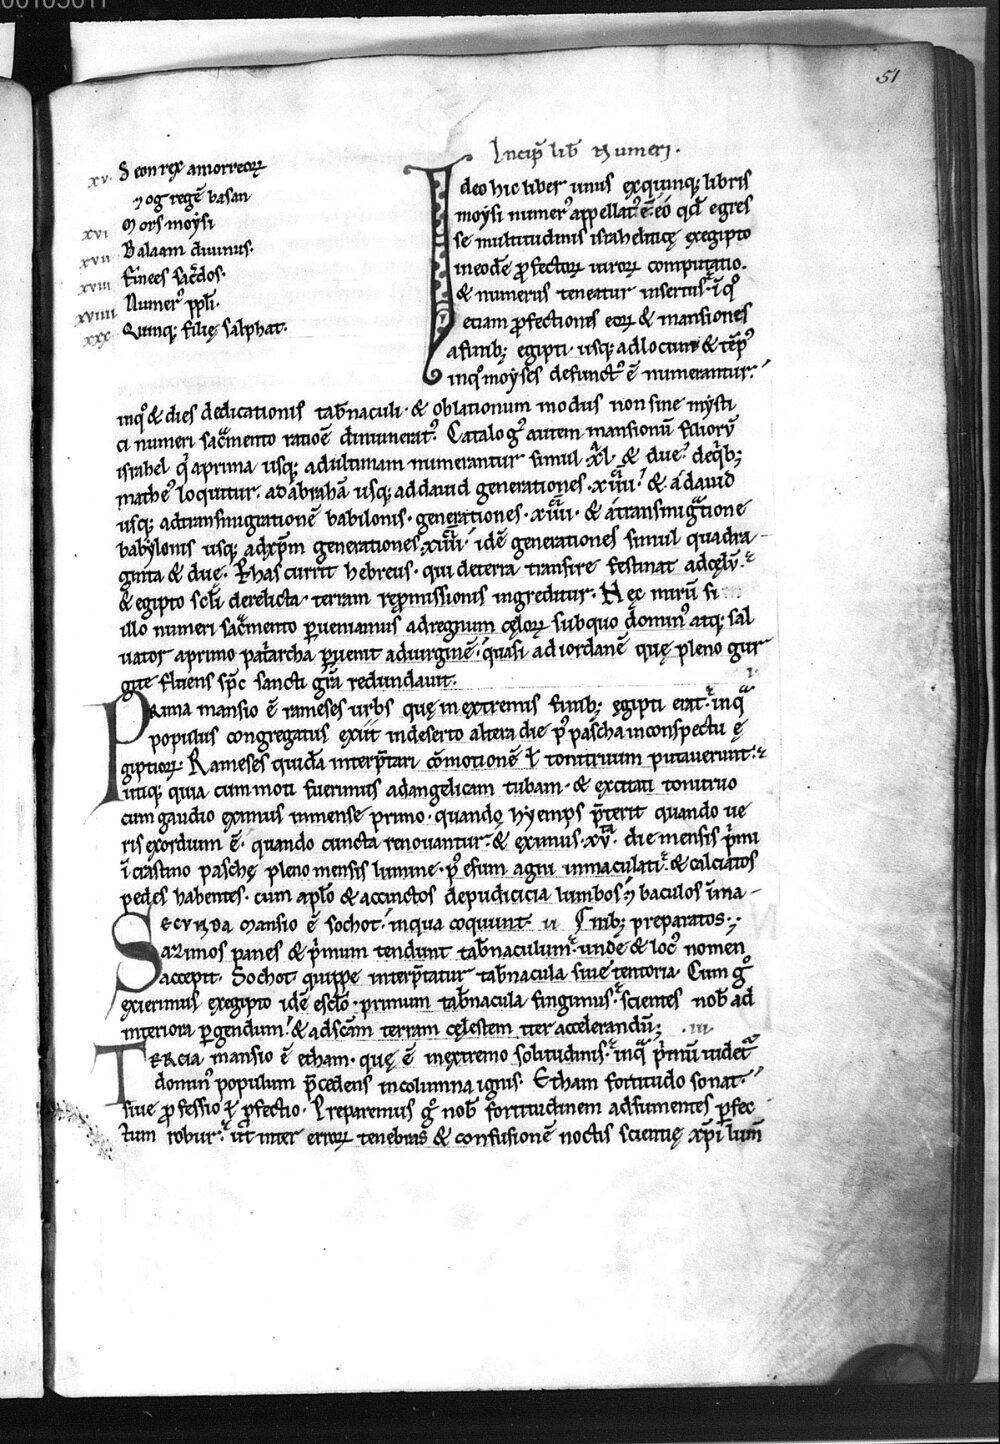 51
xv. Seon rex amorreoꝝ
⁊ og regē basan
xvi Mors moysi
xvii Balaam diuinus.
xviii Finees sac̄dos.
xviiii Numerꝰ ppl̄i.
xxx Quinqꝫ filię salphat.
Incip̄ lib̄ Numeri.
Ideo hic liber unus ex quinqꝫ libris
moysi numerꝰ appellatꝰ ē. eo qd̄ egres
se multitudinis israheliticę ex egipto
in eodē ꝓfectoꝝ uiroꝝ computatio.
& numerus teneatur insertus. ī qͦ
etiam ꝓfectiones eoꝝ & mansiones
a finibꝫ egipti. usqꝫ ad locum & tēpꝰ
in qͦ moyses defunctꝰ ē numerantur.
in qͦ & dies dedicationis tab̄naculi. & oblationum modus non sine mysti
ci numeri sac̄mento ratioē dinumeratꝰ. Catalogꝰ autem mansionū filioꝝ
israhel q̄ a prima usqꝫ ad ultimam numerantur simul .xl. & due. de qͥbꝫ
matheꝰ loquitur. ad abrahā usqꝫ ad dauid generationes .xiiii. & a dauid
usqꝫ ad transmigrationē babilonis. generationes .xiiii. & a transmigͣtione
babylonis usqꝫ ad xp̄m generationes .xiiii. idē generationes simul quadra
ginta & duę. Has currit hebreus. qui de terra transire festinat ad cęlū.
& egipto scl̄i derelicta. terram repromissionis ingreditur. Nec mirū si
illo numeri sac̄mento ꝑueniamus ad regnum cęloꝝ sub quo dominꝰ atqꝫ sal
uator a primo pat̄archa ꝑuenit ad uirginē. quasi ad iordanē quę pleno gur
gite fluens sp̄c sancti gr̄a redundauit.
Prima mansio ē rameses urbs quę in extremis finibꝫ egipti erat. in qͣ
populus congregatus exiit in deserto altera die pꝰ pascha in conspectu ę
giptioꝝ. Rameses quidā interp̄tari cōmotionē ł tonitruum putauerunt.
utiqꝫ quia cum moti fuerimus ad angelicam tubam. & excitati tonitruo
cum gaudio eximus in mense primo. quando hyemps p̄terit quando ue
ris exordium ē. quando cuncta renouantur. & eximus .xv. die mensis p̄mi
ī crastino paschę pleno mensis lumine. pꝰ esum agni inmaculati. & calciatos
pedes habentes. cum apl̄o & accinctos de pudicicia lumbos. ⁊ baculos ī ma
Secunda mansio ē sochot. in qua coquunt. ii nibꝫ preparatos.
azimos panes & p̄mum tendunt tab̄naculum. unde & locꝰ nomen
accepit. Sochot quippe interp̄tatur tab̄nacula siue tentoria. Cum gͦ
exierimus ex egipto idē escl̄o. primum tab̄nacula fingimus. scientes nob̄ ad
interiora ꝑgendum. & ad sc̄am terram cęlestem iter accelerandū. .iii.
Tercia mansio ē etham. quę ē in extremo solitudinis. in qͣ p̄mū uidet̄
dominꝰ populum p̄cedens in columna ignis. Etham fortitudo sonat.
siue ꝓfessio ł ꝑfectio. Preparemus gͦ nob̄ fortitudinem adsumentes ꝑfec
tum robur. ut inter erroꝝ tenebras & confusionē noctis scientię xp̄i lum̄